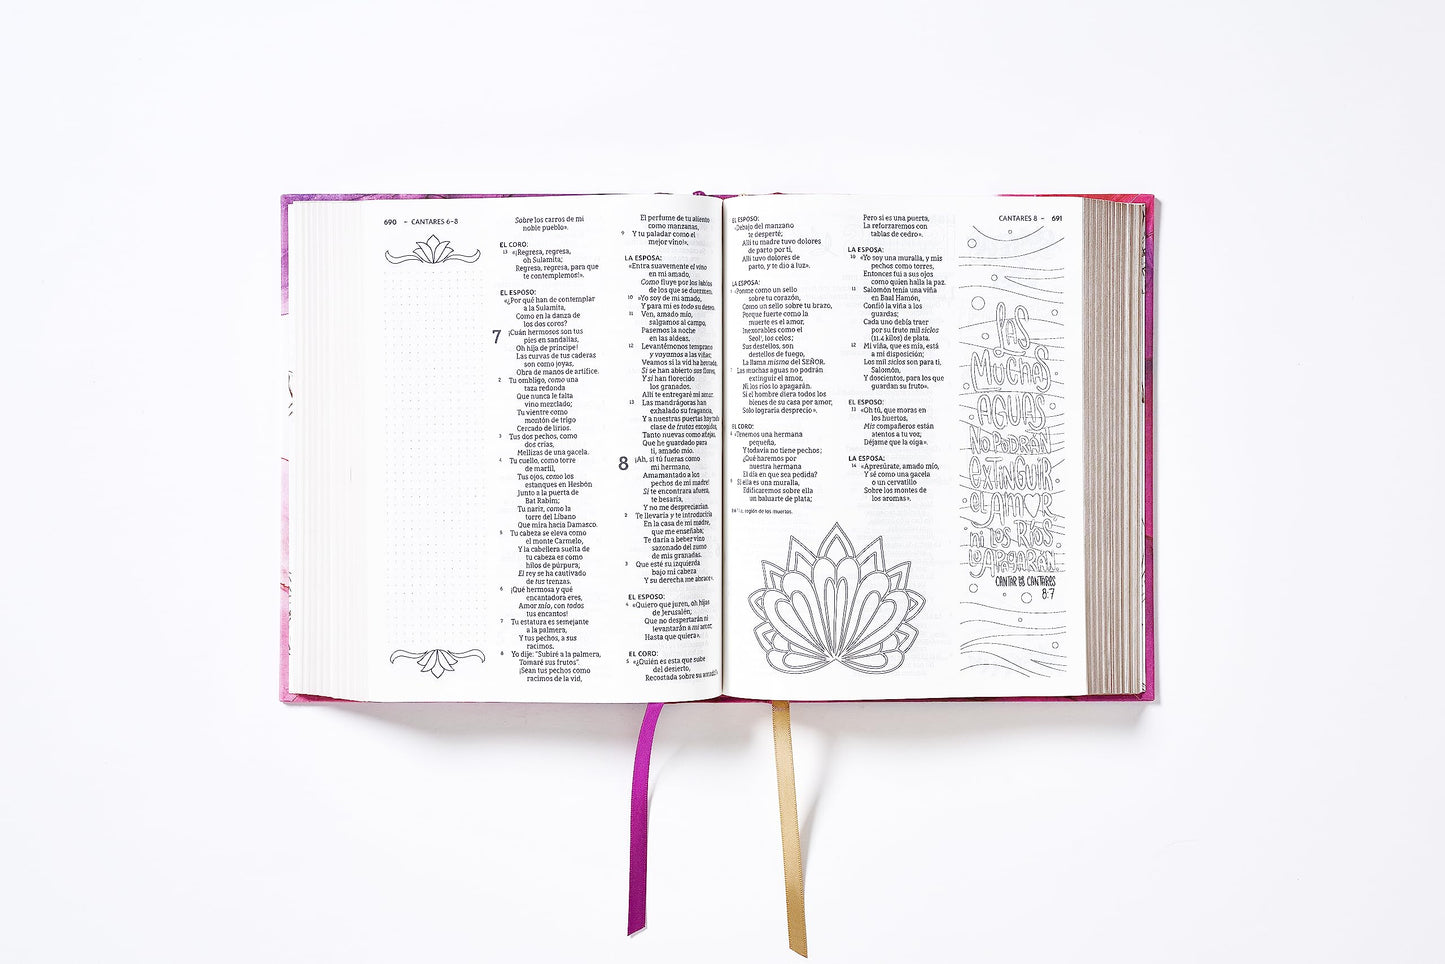 690 – CANTARES 6–8
Sobre los carros de mi
noble pueblo».
EL CORO:
13 «¡Regresa, regresa,
oh Sulamita;
Regresa, regresa, para que
te contemplemos!».
EL ESPOSO:
«¿Por qué han de contemplar
a la Sulamita,
Como en la danza de
los dos coros?
7 ¡Cuán hermosos son tus
pies en sandalias,
Oh hija de príncipe!
Las curvas de tus caderas
son como joyas,
Obra de manos de artífice.
2 Tu ombligo, como una
taza redonda
Que nunca le falta
vino mezclado;
Tu vientre como
montón de trigo
Cercado de lirios.
3 Tus dos pechos, como
dos crías,
Mellizas de una gacela.
4 Tu cuello, como torre
de marfil,
Tus ojos, como los
estanques en Hesbón
Junto a la puerta de
Bat Rabim;
Tu nariz, como la
torre del Líbano
Que mira hacia Damasco.
5 Tu cabeza se eleva como
el monte Carmelo,
Y la cabellera suelta de
tu cabeza es como
hilos de púrpura;
El rey se ha cautivado
de tus trenzas.
6 ¡Qué hermosa y qué
encantadora eres,
Amor mío, con todos
tus encantos!
7 Tu estatura es semejante
a la palmera,
Y tus pechos, a sus
racimos.
8 Yo dije: "Subiré a la palmera,
Tomaré sus frutos".
¡Sean tus pechos como
racimos de la vid,
El perfume de tu aliento
como manzanas,
9 Y tu paladar como el
mejor vino!».
LA ESPOSA:
«Entra suavemente el vino
en mi amado,
Como fluye por los labios
de los que se duermen.
10 »Yo soy de mi amado,
Y para mí es todo su deseo.
11 Ven, amado mío,
salgamos al campo,
Pasemos la noche
en las aldeas.
12 Levantémonos temprano
y vayamos a las viñas;
Veamos si la vid ha brotado,
Si se han abierto sus flores,
Y si han florecido
los granados.
Allí te entregaré mi amor.
13 Las mandrágoras han
exhalado su fragancia,
Y a nuestras puertas hay toda
clase de frutos escogidos,
Tanto nuevas como añejas,
Que he guardado para
ti, amado mío.
8 ¡Ah, si tú fueras como
mi hermano,
Amamantado a los
pechos de mi madre!
Si te encontrara afuera,
te besaría,
Y no me despreciarían.
2 Te llevaría y te introduciría
En la casa de mi madre,
que me enseñaba;
Te daría a beber vino
sazonado del zumo
de mis granadas.
3 Que esté su izquierda
bajo mi cabeza
Y su derecha me abrace».
EL ESPOSO:
4 «Quiero que juren, oh hijas
de Jerusalén:
Que no despertarán ni
levantarán a mi amor,
Hasta que quiera».
EL CORO:
5 «¿Quién es esta que sube
del desierto,
Recostada sobre su amado?».
EL ESPOSO:
«Debajo del manzano
te desperté;
Allí tu madre tuvo dolores
de parto por ti,
Allí tuvo dolores de
parto, y te dio a luz».
LA ESPOSA:
6 «Ponme como un sello
sobre tu corazón,
Como un sello sobre tu brazo,
Porque fuerte como la
muerte es el amor,
Inexorables como el
Seol, los celos;
Sus destellos, son
destellos de fuego,
La llama misma del SEÑOR.
7 Las muchas aguas no podrán
extinguir el amor,
Ni los ríos lo apagarán.
Si el hombre diera todos los
bienes de su casa por amor,
Solo lograría desprecio».
EL CORO:
8 «Tenemos una hermana
pequeña,
Y todavía no tiene pechos;
¿Qué haremos por
nuestra hermana
El día en que sea pedida?
9 Si ella es una muralla,
Edificaremos sobre ella
un baluarte de plata;
región de los muertos.
Pero si es una puerta,
La reforzaremos con
tablas de cedro».
LA ESPOSA:
10 «Yo soy una muralla, y mis
pechos como torres,
Entonces fui a sus ojos
como quien halla la paz.
11 Salomón tenía una viña
en Baal Hamón,
Confió la viña a los
guardas;
Cada uno debía traer
por su fruto mil siclos
(11.4 kilos) de plata.
12 Mi viña, que es mía, está
a mi disposición;
Los mil siclos son para ti,
Salomón,
Y doscientos, para los que
guardan su fruto».
EL ESPOSO:
13 «Oh tú, que moras en
los huertos,
Mis compañeros están
atentos a tu voz;
Déjame que la oiga».
LA ESPOSA:
14 «Apresúrate, amado mío,
Y sé como una gacela
o un cervatillo
Sobre los montes de
los aromas».
CANTARES 8 – 691
LAS
MUCHAS
AGUAS
NO PODRÁN
EXTINGUIR
EL AMOR
NI LOS RÍOS
LO APAGARÁN.
CANTAR DE CANTARES
8:7